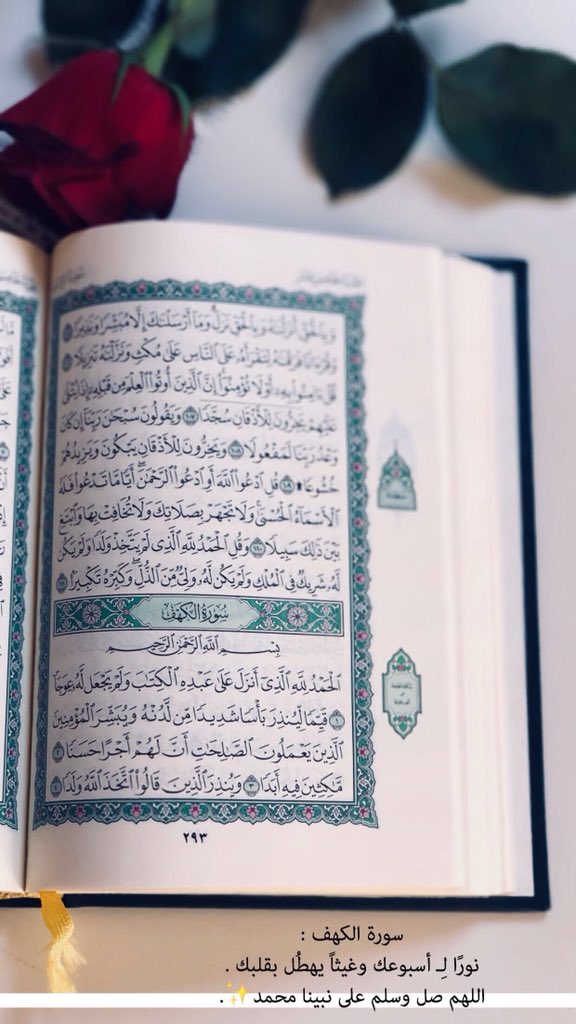 وَبِالْحَقِّ أَنزَلْنَاهُ وَبِالْحَقِّ نَزَلَ وَمَا أَرْسَلْنَاكَ إِلَّا مُبَشِّرًا وَنَذِيرًا ١٠٥
وَقُرْءَانًا فَرَقْنَاهُ لِتَقْرَأَهُ عَلَى النَّاسِ عَلَى مُكْثٍ وَنَزَّلْنَاهُ تَنزِيلًا ١٠٦
قُلْ ءَامِنُوا بِهِ أَوْ لَا تُؤْمِنُوا إِنَّ الَّذِينَ أُوتُوا الْعِلْمَ مِن قَبْلِهِ إِذَا يُتْلَى
عَلَيْهِمْ يَخِرُّونَ لِلْأَذْقَانِ سُجَّدًا ١٠٧ وَيَقُولُونَ سُبْحَانَ رَبِّنَا إِن كَانَ
وَعْدُ رَبِّنَا لَمَفْعُولًا ١٠٨ وَيَخِرُّونَ لِلْأَذْقَانِ يَبْكُونَ وَيَزِيدُهُمْ
خُشُوعًا ۩ ١٠٩ قُلِ ادْعُوا اللَّهَ أَوِ ادْعُوا الرَّحْمَٰنَ أَيًّا مَّا تَدْعُوا فَلَهُ
الْأَسْمَاءُ الْحُسْنَىٰ وَلَا تَجْهَرْ بِصَلَاتِكَ وَلَا تُخَافِتْ بِهَا وَابْتَغِ
بَيْنَ ذَٰلِكَ سَبِيلًا ١١٠ وَقُلِ الْحَمْدُ لِلَّهِ الَّذِي لَمْ يَتَّخِذْ وَلَدًا وَلَمْ يَكُن
لَّهُ شَرِيكٌ فِي الْمُلْكِ وَلَمْ يَكُن لَّهُ وَلِيٌّ مِّنَ الذُّلِّ وَكَبِّرْهُ تَكْبِيرًا ١١١
سُورَةُ الكَهْفِ
بِسْمِ اللَّهِ الرَّحْمَٰنِ الرَّحِيمِ
الْحَمْدُ لِلَّهِ الَّذِي أَنزَلَ عَلَىٰ عَبْدِهِ الْكِتَابَ وَلَمْ يَجْعَل لَّهُ عِوَجَا
١ قَيِّمًا لِّيُنذِرَ بَأْسًا شَدِيدًا مِّن لَّدُنْهُ وَيُبَشِّرَ الْمُؤْمِنِينَ
الَّذِينَ يَعْمَلُونَ الصَّالِحَاتِ أَنَّ لَهُمْ أَجْرًا حَسَنًا ٢
مَّاكِثِينَ فِيهِ أَبَدًا ٣ وَيُنذِرَ الَّذِينَ قَالُوا اتَّخَذَ اللَّهُ وَلَدًا ٤
٢٩٣
سورة الكهف :
نورًا لِـ أسبوعك وغيثاً يهطُل بقلبك .
اللهم صل وسلم على نبينا محمد✨ .